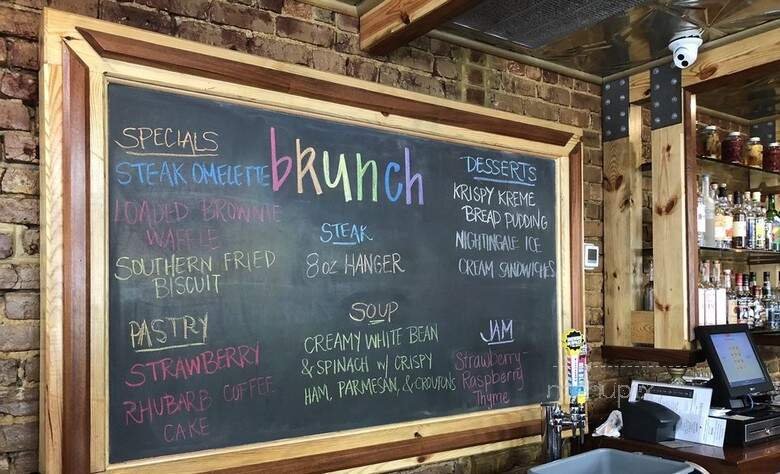 brunch
SPECIALS
STEAK OMELETTE
LOADED BROWNIE
WAFFLE
SOUTHERN FRIED
BISCUIT
PASTRY
STRAWBERRY
RHUBARB COFFEE
CAKE
STEAK
8oz HANGER
SOUP
CREAMY WHITE BEAN
& SPINACH w/ CRISPY
HAM, PARMESAN, & CROUTONS
DESSERTS
KRISPY KREME
BREAD PUDDING
NIGHTINGALE ICE
CREAM SANDWICHES
JAM
Strawberry-
Raspberry
Thyme